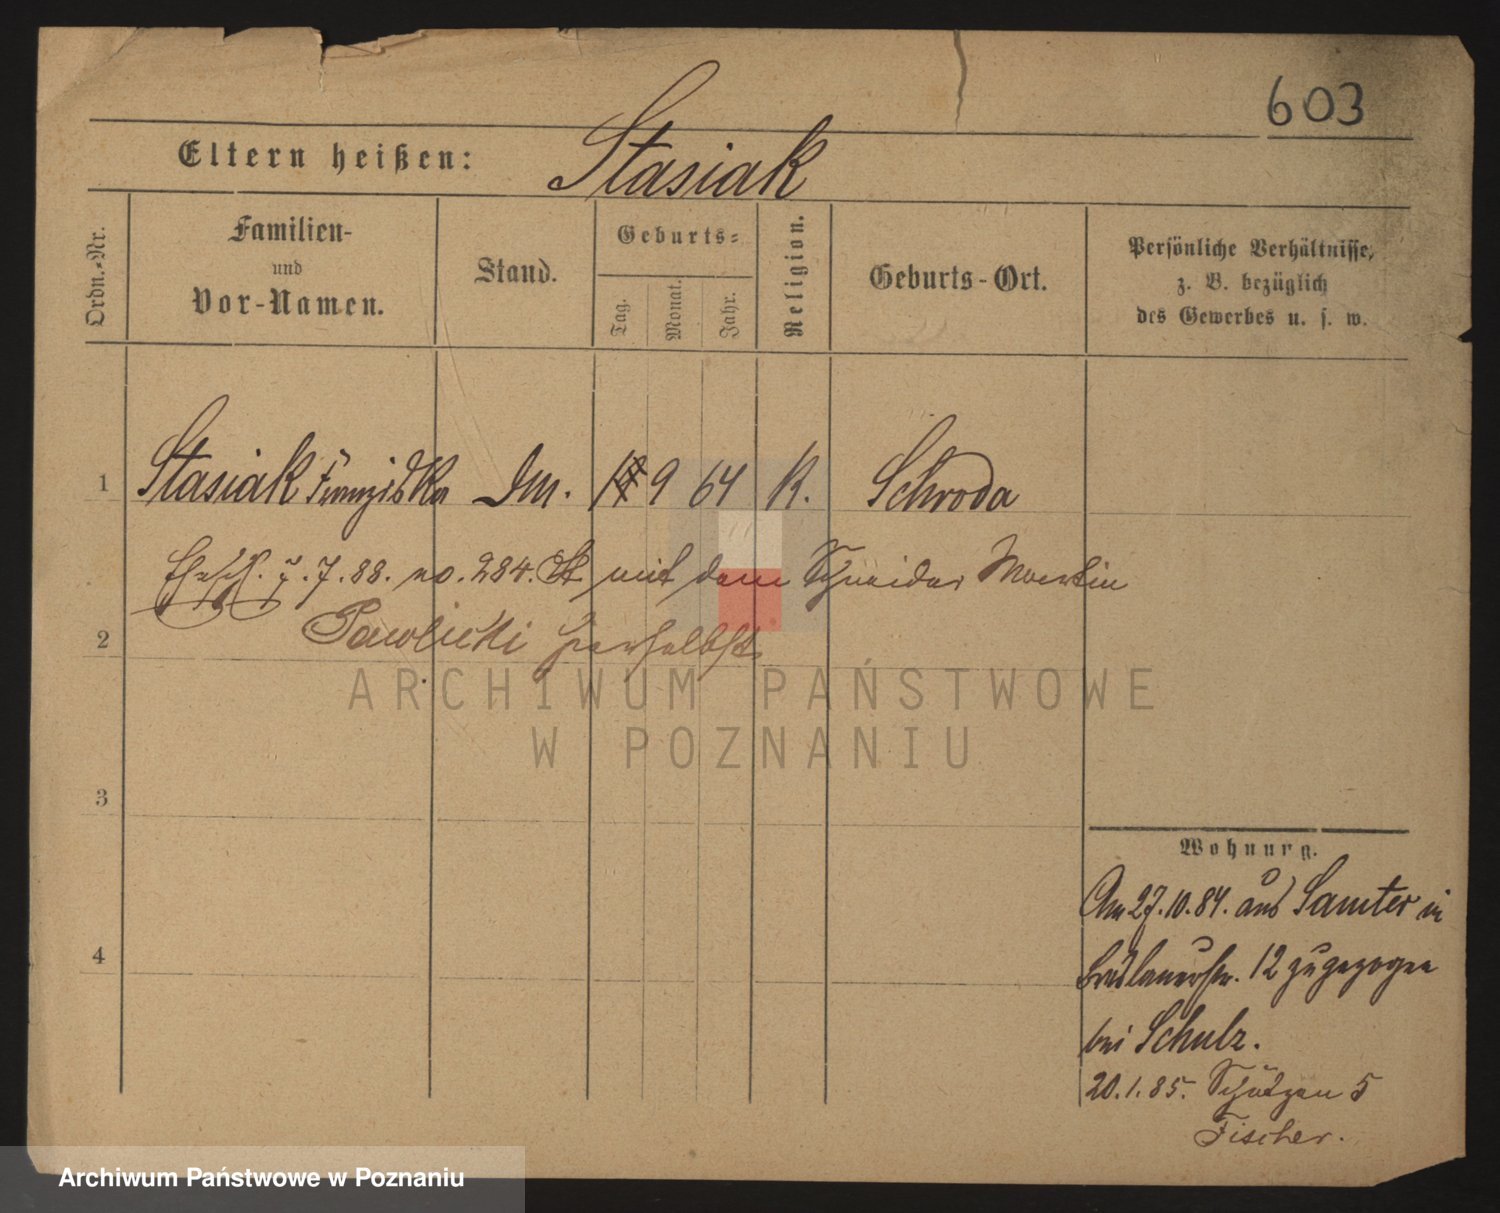 603
Eltern heißen: Stasiak
Ordn.-Nr.
Familien-
und
Vor-Namen.
Stand.
Geburts-
Tag.
Monat.
Jahr.
Religion.
Geburts-Ort.
Persönliche Verhältnisse,
z. B. bezüglich
des Gewerbes u. s. w.
1 Stasiak Franziska 9 64 K. Schroda
Ehesch. 7.7.88. no. 284. mit dem Schneider Martin
2 Pawlicki hierselbst
ARCHIWUM PAŃSTWOWE
W POZNANIU
3
Wohnung.
Am 27.10.84. aus Samter in
4
Breslauerstr. 12 zugezogen
bei Schulz.
20.1.85. Schützen 5
Fischer.
Archiwum Państwowe w Poznaniu